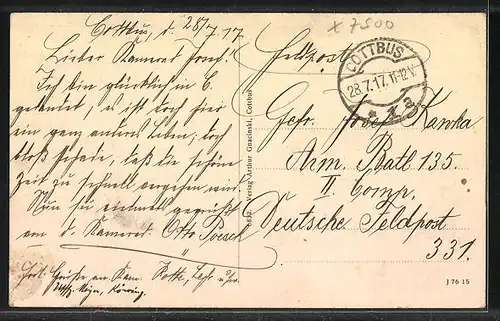 Cottbus, d. 28/7. 17.
Lieber Kamerad Josef!
Ich bin glücklich in C.
gelandet, es ist doch hier
ein ganz anderes Leben; doch
bloß schade, daß die schöne
Zeit zu schnell vergehen wird.
Nun sei vielmals gegrüßt
von d. Kamerad. Otto
Grüße an Kam.
x 7500
Feldpost
COTTBUS
28.7.17.11-12V.
* 1 a
Gefr. Josef Kawka
Arm. Batl. 135.
II Comp.
Deutsche Feldpost
331.
Verlag Arthur Gnacinski, Cottbus
J 76 15